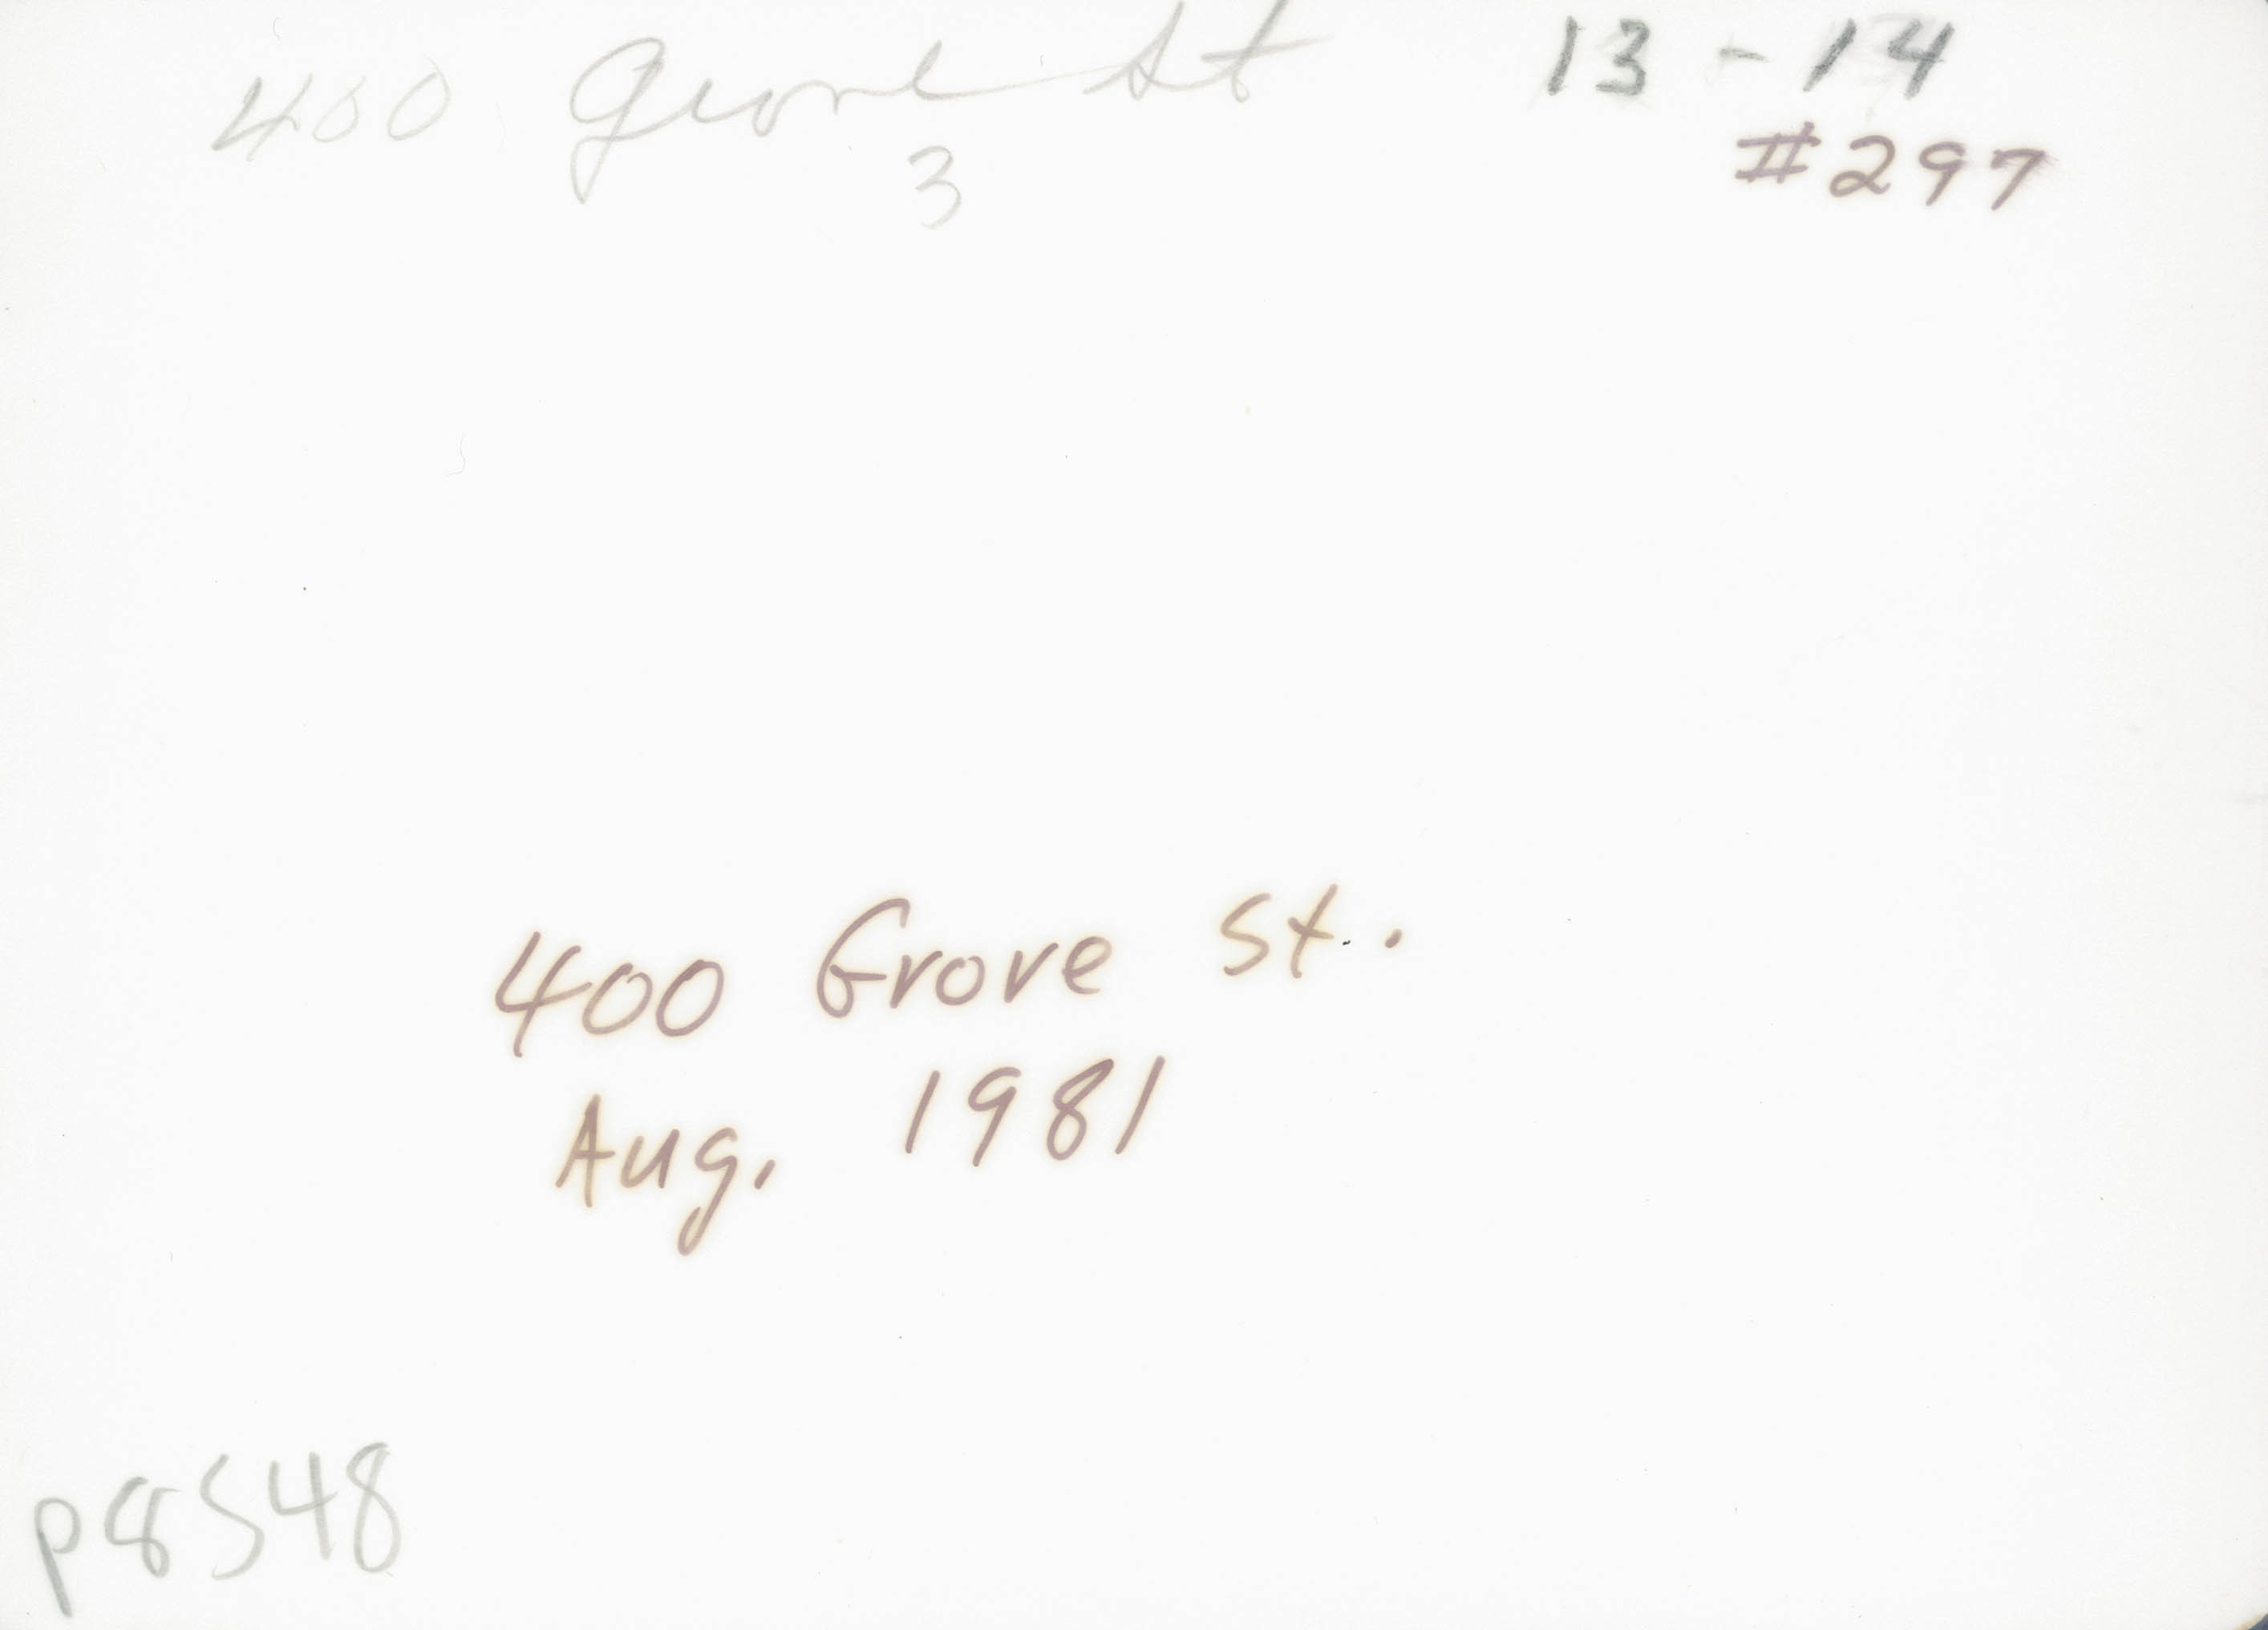 400 Grove St
3
13 - 14
#297
400 Grove St.
Aug. 1981
p8548